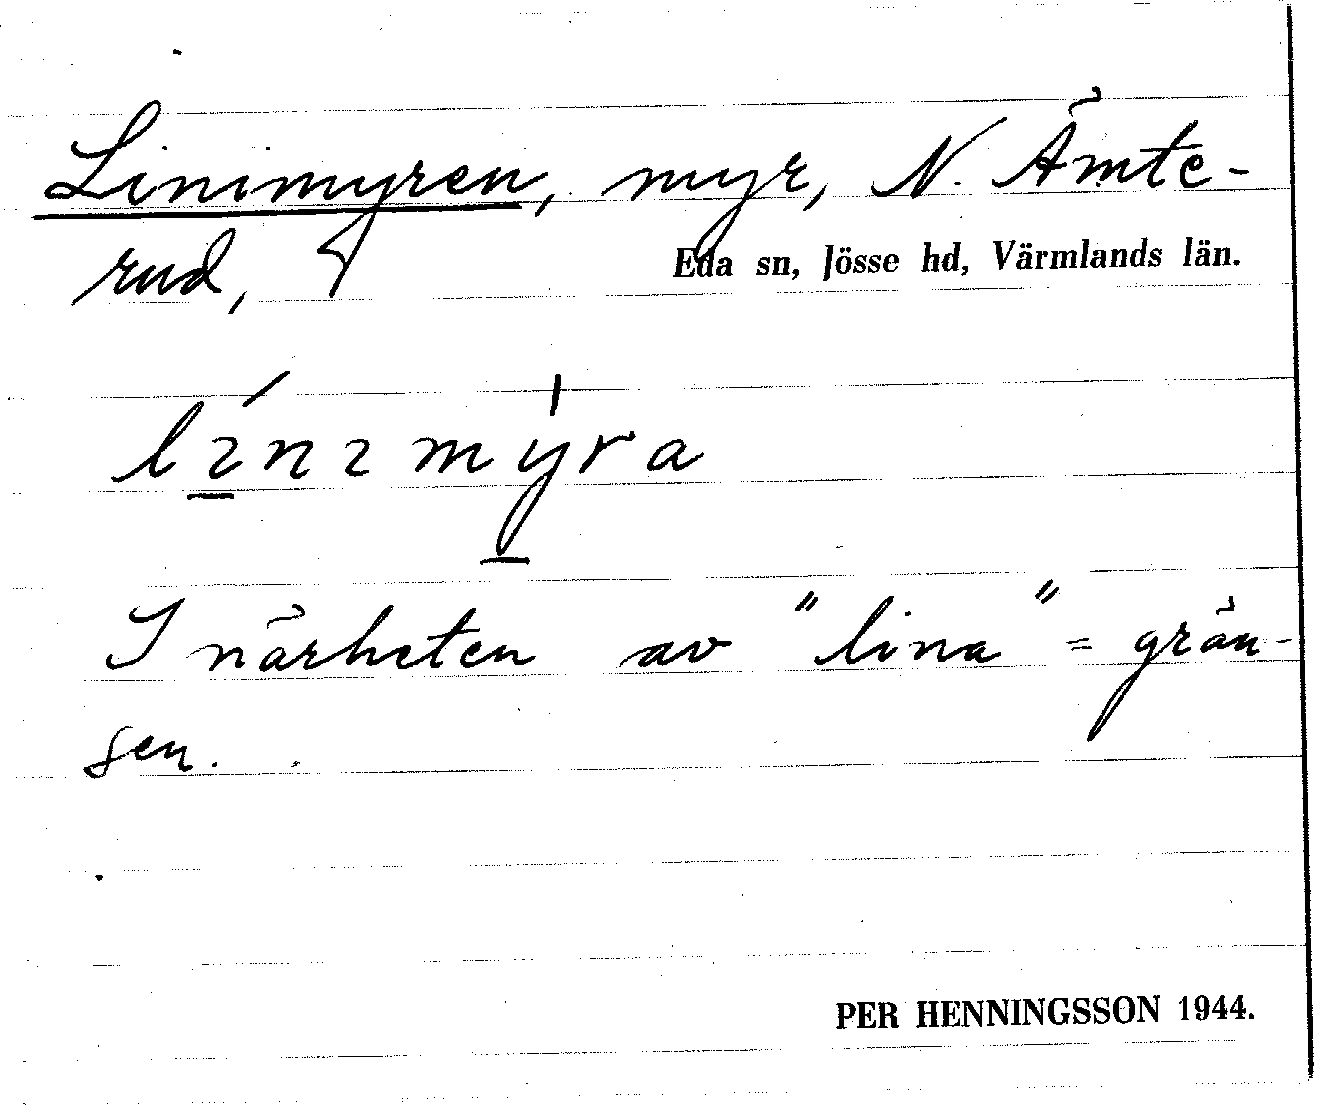 Linimyren, myr, N. Ämte-
rud,
Eda sn, Jösse hd, Värmlands län.
línimy̍ra
I närheten av "lina" = grän-
sen.
PER HENNINGSSON 1944.